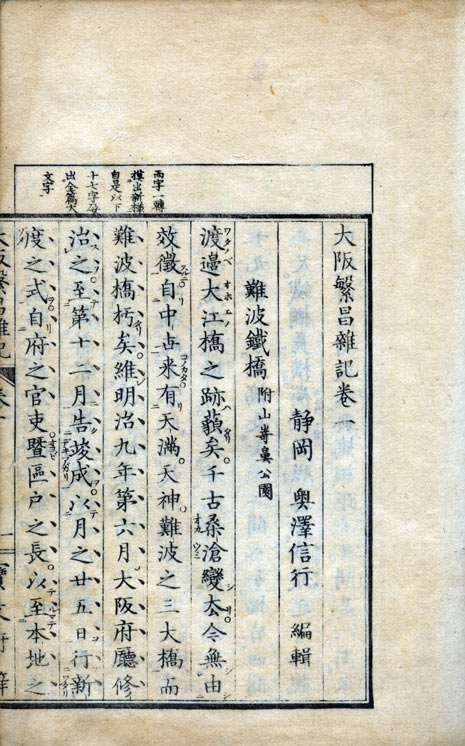 大阪繁昌雜記卷一
靜岡 奥澤信行 編輯
難波鐵橋 附山嵜鼻公園
渡邉大江橋之跡藐矣千古桑滄變厺今無由
效徴自中古来有天滿天神難波之三大橋而
難波橋朽矣維明治九年第六月大阪府廳修
治之至第十二月告竣成以月之廿五日行新
渡之式自府之官吏曁區戸之長以至本地之
而字一轉
出新様
自是以下
十七字
出全篇大
文字
大阪繁昌雜記 卷一